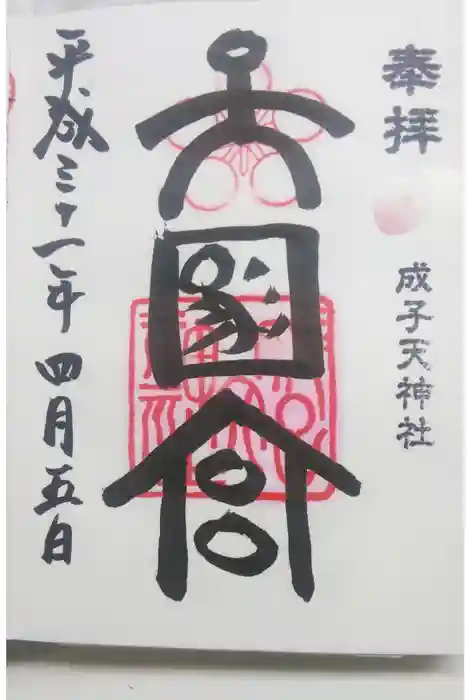 奉拝
成子天神社
大國宮
平成三十一年 四月五日